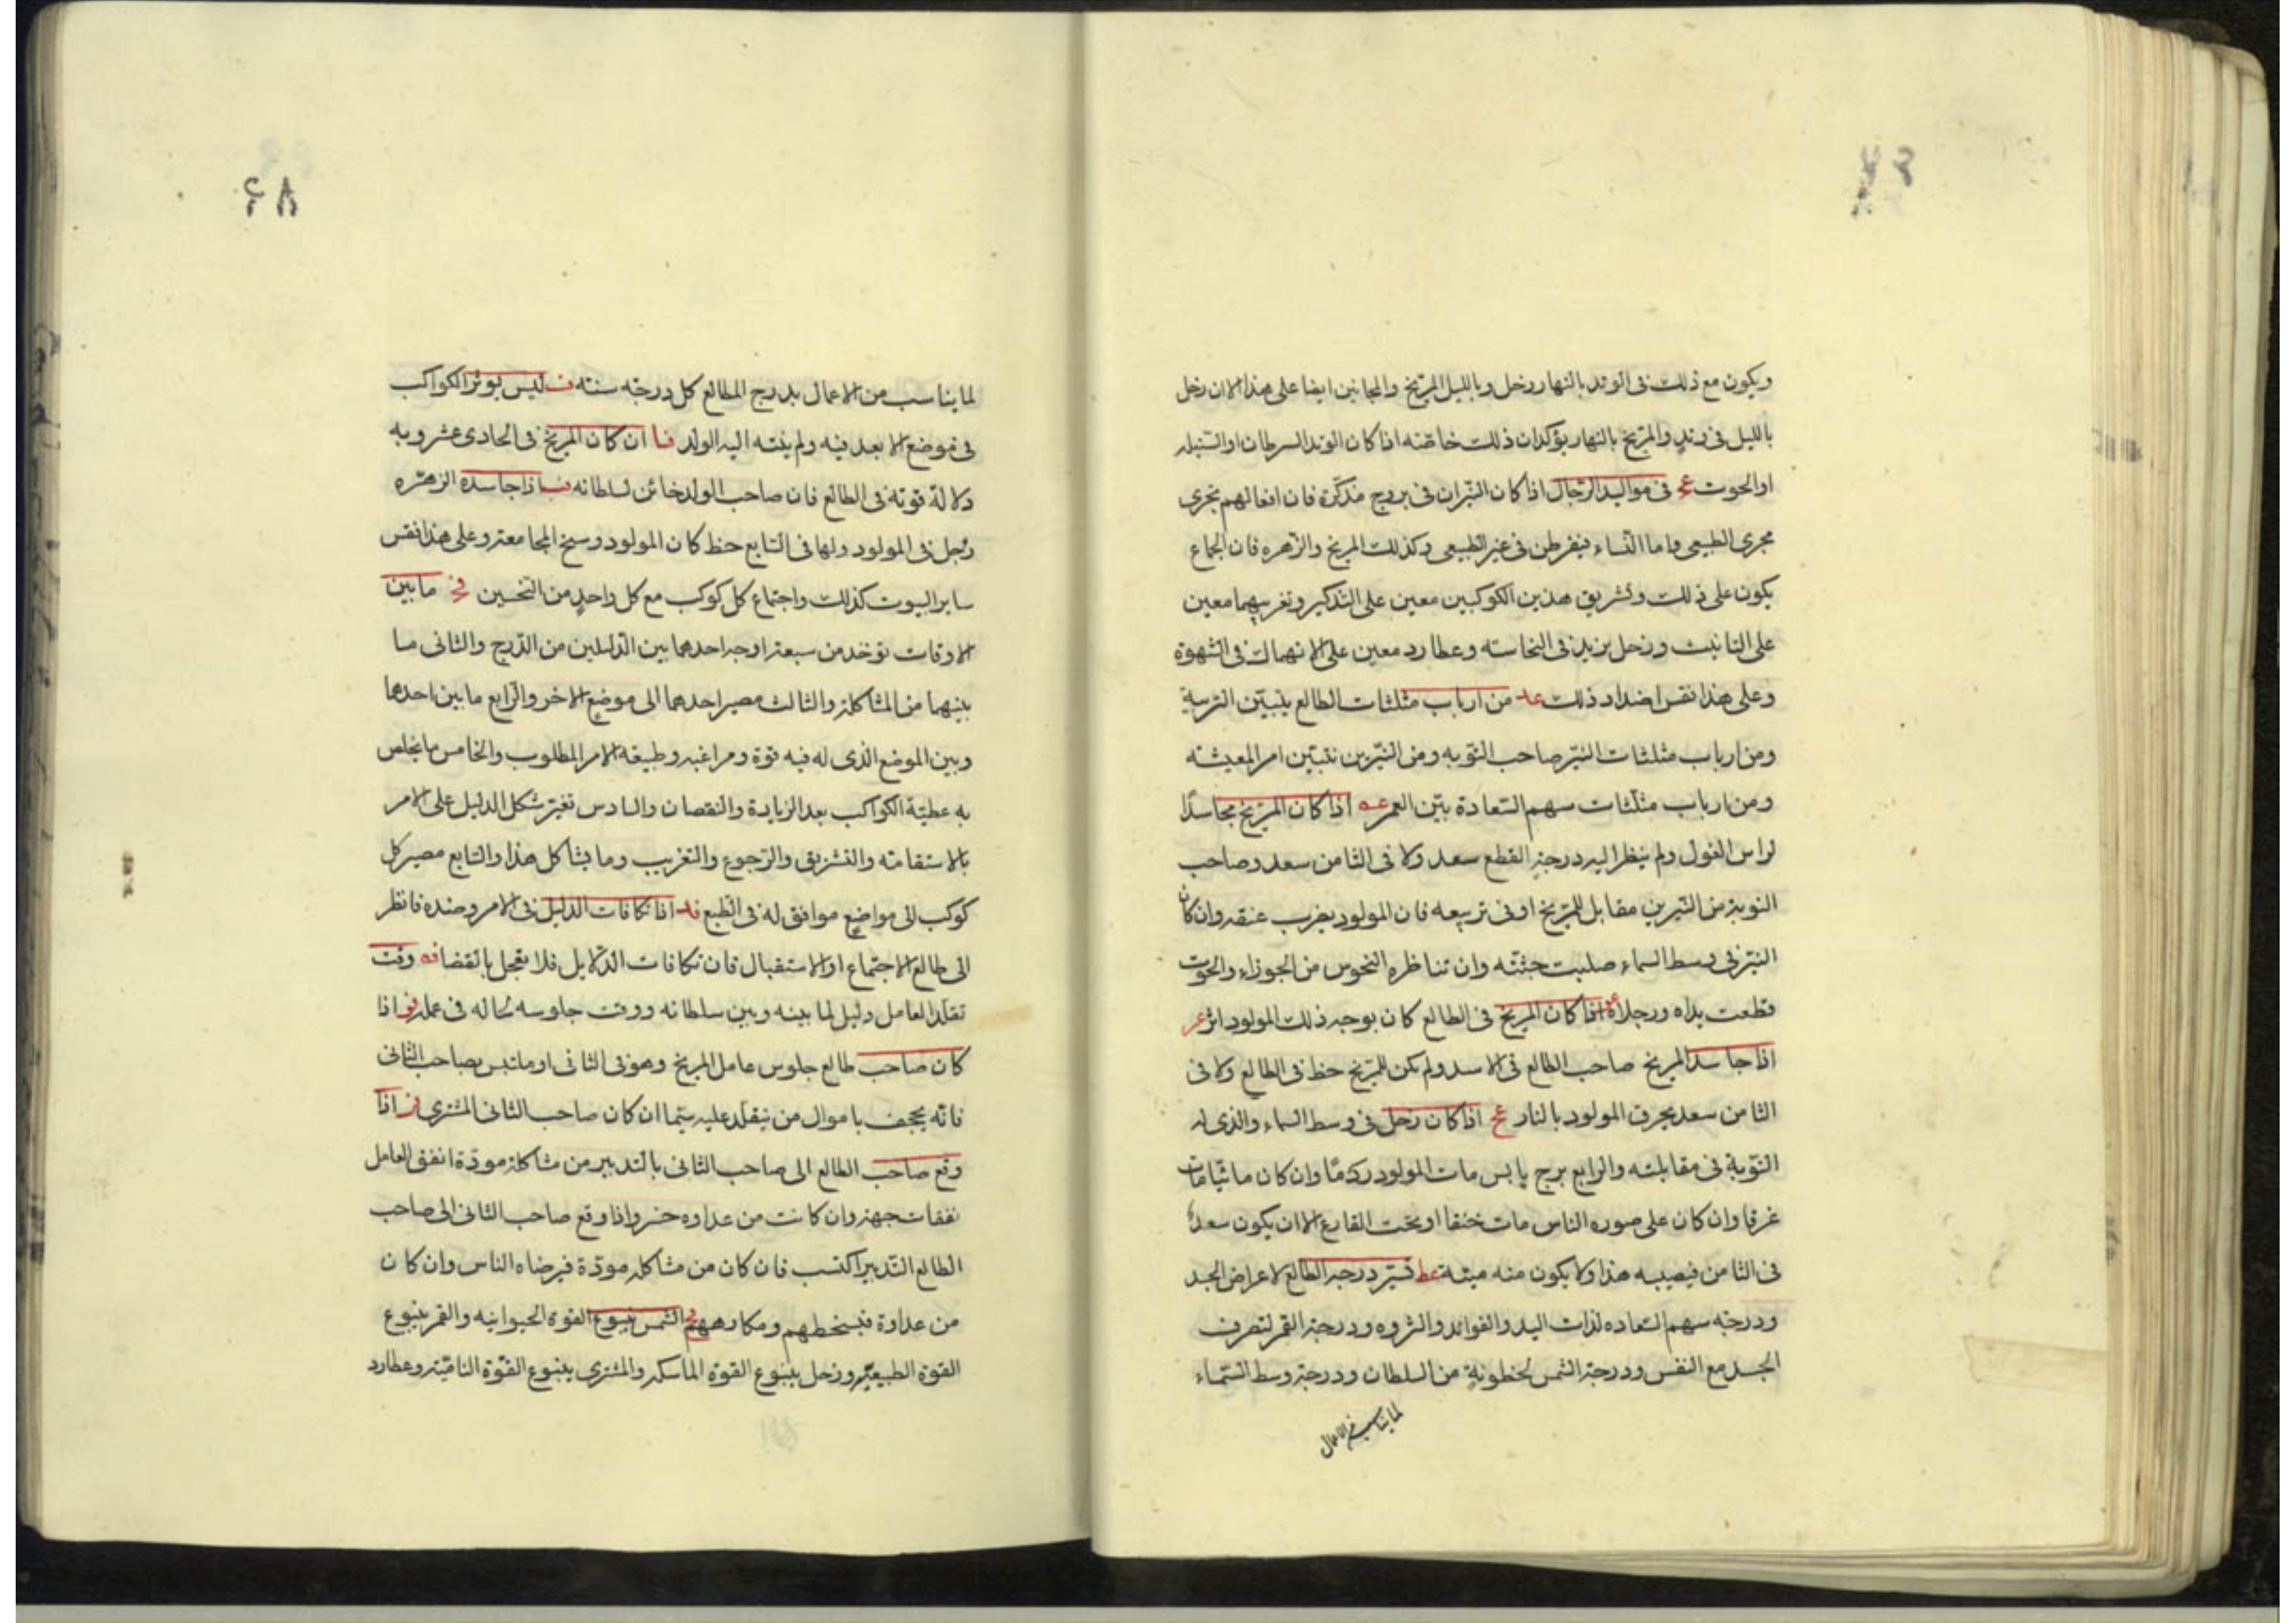 ويكون مع ذلك فى الوتد بالنهار زحل وبالليل المريخ والمجانين ايضا على هذا الا ان زحل
بالليل فى وتد والمريخ بالنهار يؤكدان ذلك خاصته اذا كان الوتد السرطان او السنبله
او الحوت عج فى مواليد الرجال اذا كان النيران فى بروج مذكرة فان افعالهم تجرى
مجرى الطبيعى واما النساء فيفرطن فى غير الطبيعى وكذلك المريخ والزهره فان الجماع
يكون على ذلك وتشريق هذين الكوكبين معين على التذكير وتغريبهما معين
على التانيث وزحل يزيد فى النجاسته وعطارد معين على الانهماك فى الشهوة
وعلى هذا نقس اضداد ذلك عد من ارباب مثلثات الطالع يتبين التربية
ومن ارباب مثلثات النير صاحب النوبه ومن النيرين نتبين امر المعيشته
ومن ارباب مثلثات سهم السعادة بين العمر عه اذا كان المريخ مجاسدا
لراس الغول ولم ينظر اليه درجة القطع سعد ولا فى الثامن سعد وصاحب
النوبة من النيرين مقابل للمريخ او فى تربيعه فان المولود يضرب عنقه وان كان
النير فى وسط السماء صلبت جثته وان تناظره النحوس من الجوزاء والحوت
قطعت يداه ورجلاه عو اذا كان المريخ فى الطالع كان بوجه ذلك المولود اثر عز
اذا جاسد المريخ صاحب الطالع فى الاسد ولم يكن للمريخ حظ فى الطالع ولا فى
الثامن سعد يحرق المولود بالنار عح اذا كان زحل فى وسط السماء والذى له
النوبة فى مقابلته والرابع برج يابس مات المولود ردما وان كان مائيا مات
غرقا وان كان على صوره الناس مات خنقا او تحت المقارع الا ان يكون سعد
فى الثامن فيصيبه هذا ولا يكون منه ميتة عط تسير درجة الطالع لاعراض الجسد
ودرجته سهم السعاده لذات اليد والفوائد والثروه ودرجة القمر لتصرف
الجسد مع النفس ودرجة الشمس لحظوته من السلطان ودرجة وسط السماء
لما يناسب من الاعمال
٤٨
لما يناسب من الاعمال بدرج المطالع كل درجته سنته ف ليس يوثر الكواكب
فى موضع الا بعد فيه ولم ينته اليه الولد فا ان كان المريخ فى الحادى عشر وبه
دلالة قوته فى الطالع فان صاحب الولد خائن لسلطانه فب اذا جاسدة الزهره
زحل فى المولود ولها فى السابع حظ كان المولود وسخ المجامعة وعلى هذا فقس
ساير البيوت كذلك واجتماع كل كوكب مع كل واحد من النحسين فج مابين
الاوقات توخذ من سبعة اوجه احدهما بين الدليلين من الدرج والثانى ما
بينهما من المشاكلة والثالث مصير احدهما الى موضع الاخر والرابع مابين احدهما
وبين الموضع الذى له فيه قوة ومراغبه وطبيعه الامر المطلوب والخامس ما يخلص
به عطية الكواكب بعد الزيادة والنقصان والسادس تغير شكل الدليل على الامر
بالاستقامته والتشريق والرجوع والتغريب وما يشاكل هذا والسابع مصير كل
كوكب الى مواضع موافق له فى الطبع فد اذا تكافات الدليل فى الامر وضده فانظر
الى طالع الاجتماع او الاستقبال فان تكافات الدلايل فلا تعجل بالقضا فه وقت
تقلد العامل دليل لما بينه وبين سلطانه ووقت جلوسه لحاله فى عمله فو اذا
كان صاحب طالع جلوس عامل المريخ وهو فى الثانى او ملتبس بصاحب الثانى
فانه يجحف باموال من يتقلد عليه سيما ان كان صاحب الثانى المشترى فز اذا
وقع صاحب الطالع الى صاحب الثانى بالتدبير من مشاكلة مودة انفق العامل
نفقات جهة وان كانت من عداوه خسر واذا وقع صاحب الثانى الى صاحب
الطالع التدبير اكتسب فان كان من مشاكله مودة فبرضاه الناس وان كان
من عداوة فبسخطهم ومكارههم فح الشمس ينبوع القوة الحيوانيه والقمر ينبوع
القوة الطبيعية وزحل ينبوع القوة الماسكه والمشترى ينبوع القوة النامية وعطارد